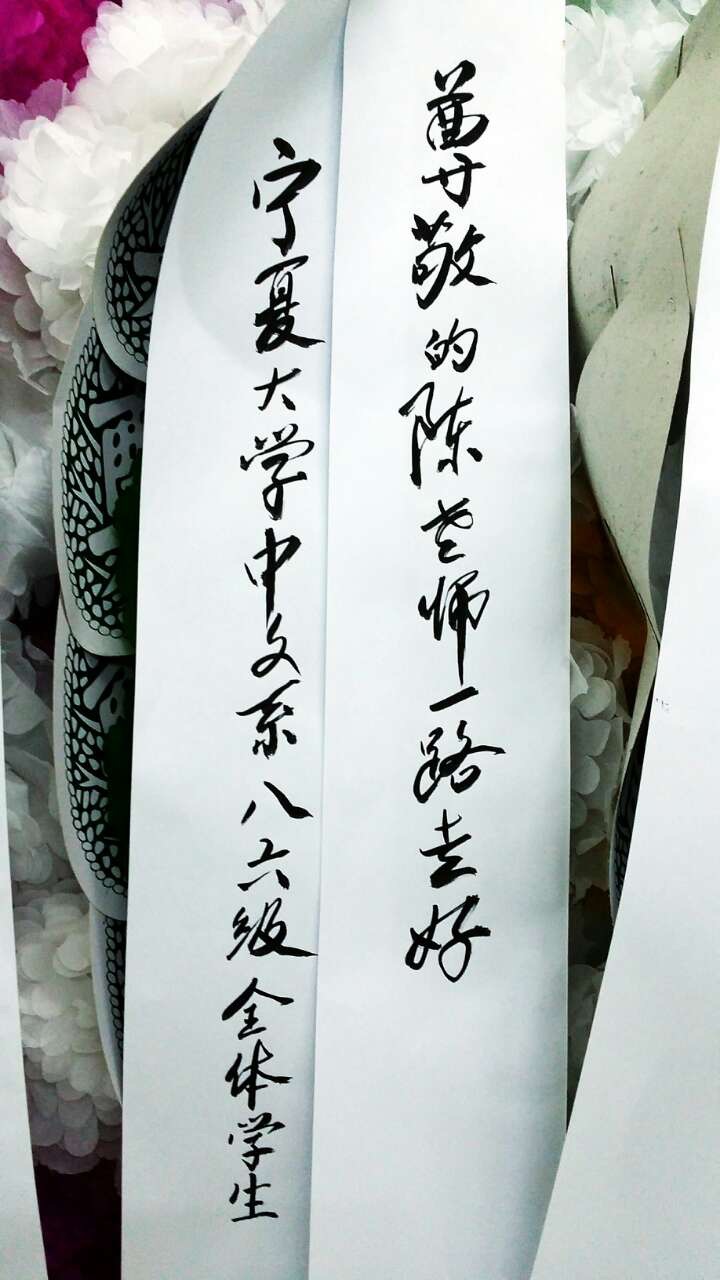 尊敬的陈老师一路走好
宁夏大学中文系八六级全体学生